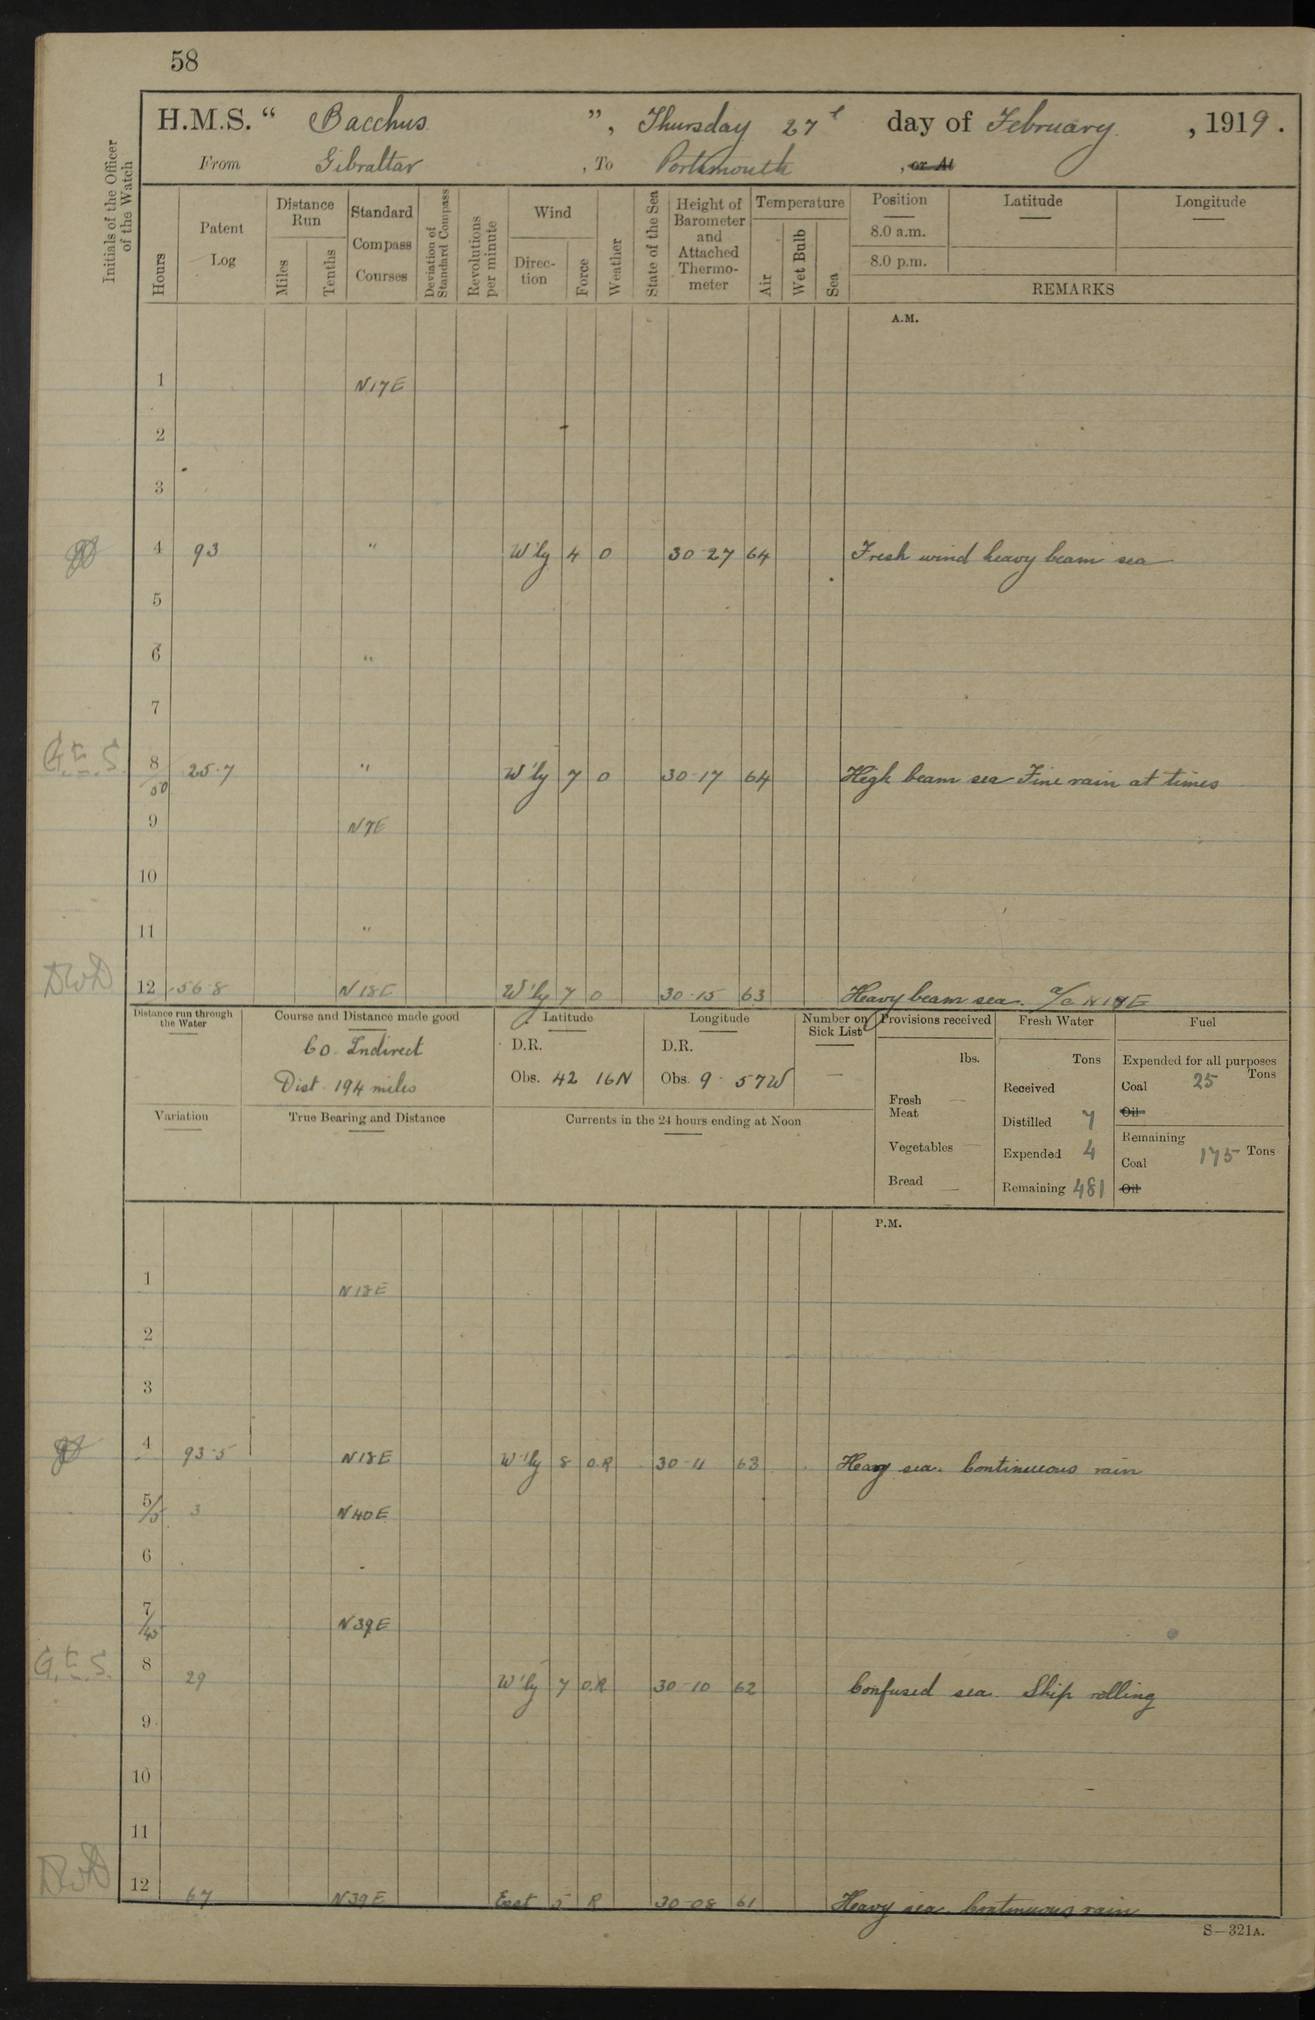 58
H.M.S. “ Bacchus ”, Thursday 27th day of February, 1919.
From Gibraltar, To Portsmouth, or At
Initials of the Officer of the Watch
Hours
Patent Log
Distance Run
Miles
Tenths
Standard Compass Courses
Deviation of Standard Compass
Revolutions per minute
Wind
Direc-tion
Force
Weather
State of the Sea
Height of Barometer and Attached Thermo-meter
Temperature
Air
Wet Bulb
Sea
Position
8.0 a.m.
8.0 p.m.
Latitude
Longitude
REMARKS
A.M.
1 N17E
2
3
4 93 " W'ly 4 O 30·27 64 Fresh wind heavy beam sea
5
6 "
7
G.E.S. 8 25·7 " W'ly 7 O 30·17 64 High beam sea Fine rain at times
/50
9 N7E
10
11 "
DWD 12 56·8 N18E W'ly 7 O 30·15 63 Heavy beam sea. a/c N18E
Distance run through the Water
Course and Distance made good
Co. Indirect
Dist 194 miles
Latitude
D.R.
Obs. 42 16N
Longitude
D.R.
Obs. 9 57W
Number on Sick List
—
Provisions received
lbs.
Fresh Meat —
Vegetables —
Bread —
Fresh Water
Tons
Received
Distilled 7
Expended 4
Remaining 481
Fuel
Expended for all purposes
Tons
Coal 25
Oil
Remaining
Coal 175 Tons
Oil
Variation
True Bearing and Distance
Currents in the 24 hours ending at Noon
P.M.
1 N18E
2
3
4 93·5 N18E W'ly 8 O.R 30·11 63 Heavy sea. Continuous rain
5/5 3 N40E
6
7/45 N39E
G.E.S. 8 29 W'ly 7 O.R 30·10 62 Confused sea. Ship rolling
9
10
11
DWD 12 67 N39E East 5 R 30·08 61 Heavy sea. Continuous rain
S—321A.